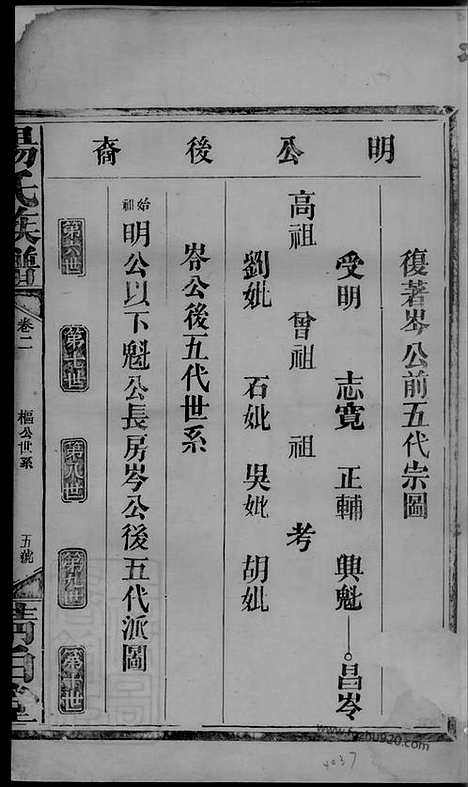 明公後裔
復著岑公前五代宗圖
受明 志寬 正輔 興魁——。昌岑
高祖 曾祖 祖 考
劉妣 石妣 吳妣 胡妣
岑公後五代世系
始祖明公以下魁公長房岑公後五代派圖
第六世 第七世 第八世 第九世 第十世
楊氏族譜 卷二 樞公世系 五號 清白堂
4037